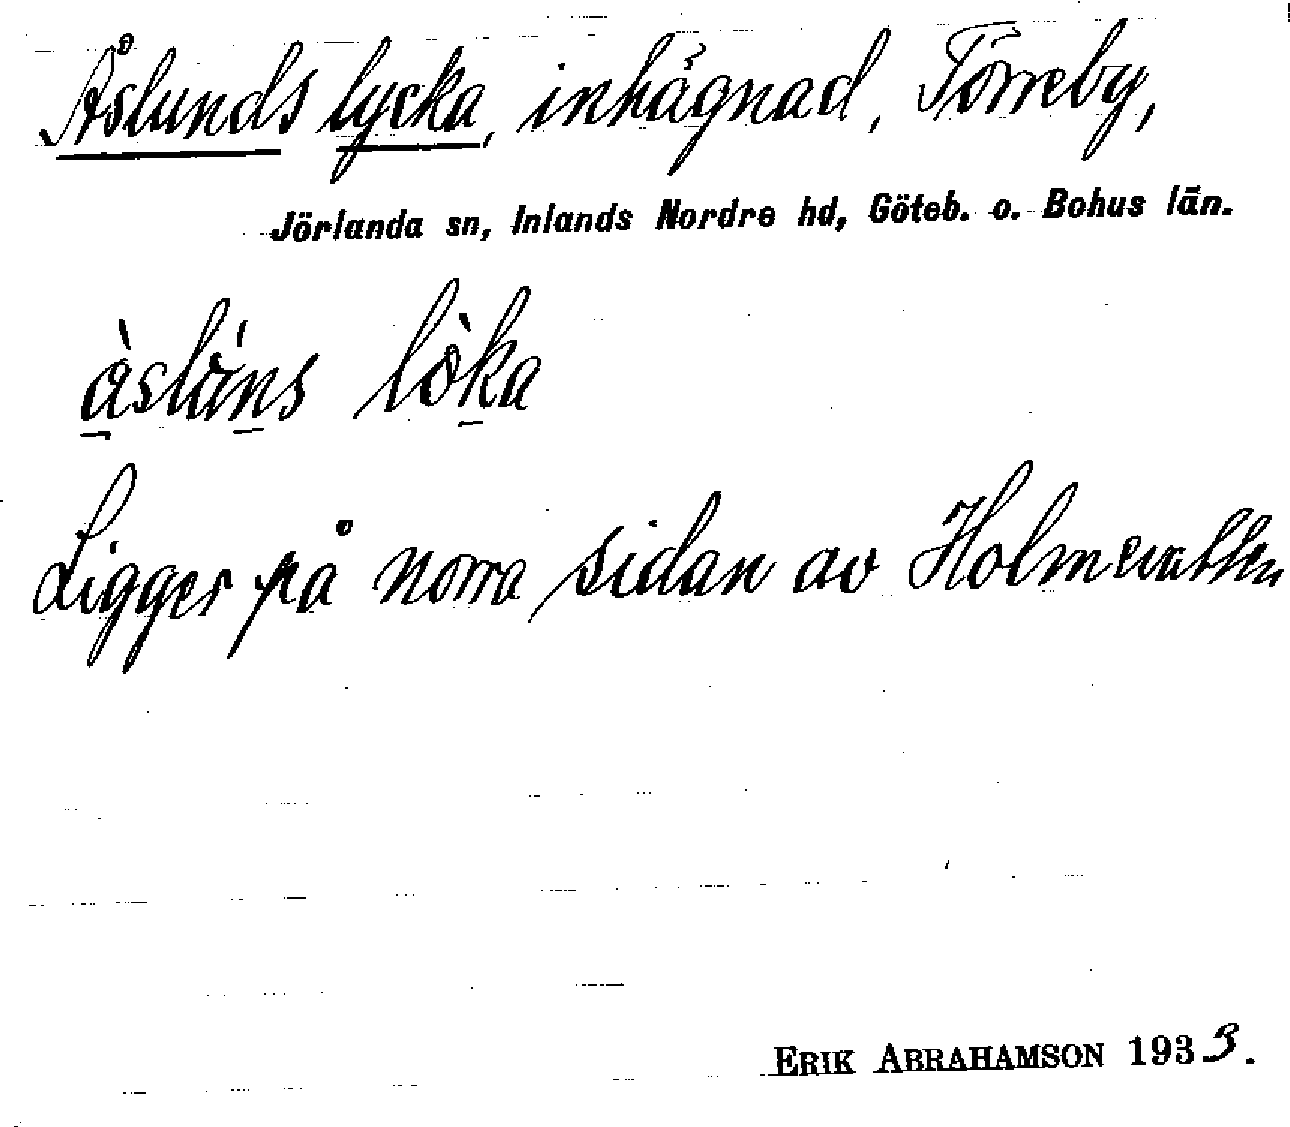 Åslunds lycka, inhägnad, Törreby,
Jörlanda sn, Inlands Nordre hd, Göteb. o. Bohus län.
àslǻns lòka
Ligger på norra sidan av Holmevatten
ERIK ABRAHAMSON 1933.